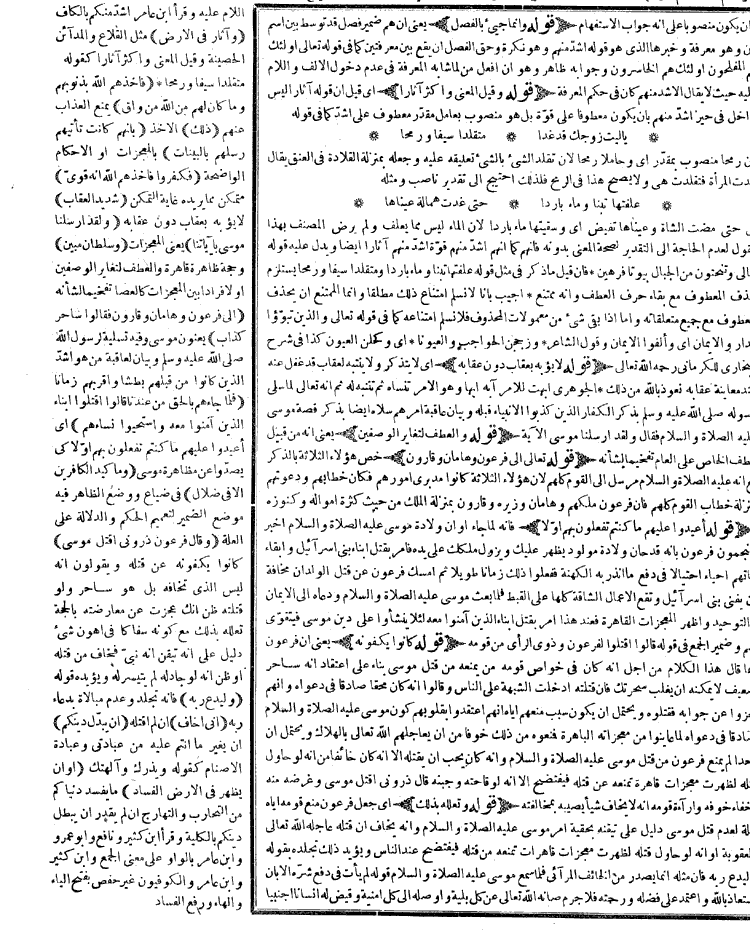 ان يكون منصوبا على انه جواب الاستفهام ﴿قوله وانما جيئ بالفصل﴾ يعنى ان هم ضمير فصل قد توسط بين اسم
ن وهو معرفة وخبرها الذى هو قوله اشد منهم وهو نكرة وحق الفصل ان يقع بين معرفتين كما فى قوله تعالى اولئك
م المفلحون اولئك هم الخاسرون وجوابه ظاهر وهو ان افعل من لما شابه المعرفة فى عدم دخول الالف واللام
ليه حيث لا يقال الاشد منهم كان فى حكم المعرفة ﴿قوله وقيل المعنى واكثر آثارا﴾ اى قيل ان قوله آثارا ليس
اخل فى حيز اشد منهم بان يكون معطوفا على قوة بل هو منصوب بعامل مقدر معطوف على اشد كما فى قوله
ياليت زوجك قد غدا * متقلدا سيفا ورمحا *
ن رمحا منصوب بمقدر اى وحاملا رمحا لان تقلد الشئ بالشئ تعليقه عليه وجعله بمنزلة القلادة فى العنق يقال
دت المرأة فتقلدت هى ولا يصح هذا فى الرمح فلذلك احتيج الى تقدير ناصب ومثله
* علفتها تبنا وماء باردا * حتى غدت همالة عيناها *
ى حتى مضت الشاة وعيناها تفيض اى وسقيتها ماء باردا لان الماء ليس مما يعلف ولم يرض المصنف بهذا
قول لعدم الحاجة الى التقدير لصحة المعنى بدونه فانهم كما انهم اشد منهم قوة اشد منهم آثارا ايضا ويدل عليه قوله
الى وتنحتون من الجبال بيوتا فرهين * فان قيل ما ذكر فى مثل قوله علفتها تبنا وماء باردا ومتقلدا سيفا ورمحا يستلزم
حذف المعطوف مع بقاء حرف العطف وانه ممتنع * اجيب بانا لا نسلم امتناع ذلك مطلقا وانما الممتنع ان يحذف
معطوف مع جميع متعلقاته واما اذا بقى شئ من معمولات المحذوف فلا نسلم امتناعه كما فى قوله تعالى والذين تبوّؤا
دار والايمان اى وألفوا الايمان وقول الشاعر * وزججن الحواجب والعيونا * اى وكحلن العيون كذا فى شرح
بخارى للكرمانى رحمه الله تعالى ﴿قوله لا يؤبه بعقاب دون عقابه﴾ اى لا يتذكر ولا ينتبه لعقاب قد غفل عنه
ند معاينة عقابه نعوذ بالله من ذلك * الجوهرى ابهت للامر آبه ابها وهو الامر تنساه ثم تنتبه له ثم انه تعالى لما سلى
سوله صلى الله عليه وسلم بذكر الكفار الذين كذبوا الانبياء قبله وبيان عاقبة امرهم سلاه ايضا بذكر قصة موسى
ليه الصلاة و السلام فقال ولقد ارسلنا موسى الآية ﴿قوله والعطف لتغاير الوصفين﴾ يعنى انه من قبيل
طف الخاص على العام تفخيما لشأنه ﴿قوله تعالى الى فرعون وهامان وقارون﴾ خص هؤلاء الثلاثة بالذكر
ع انه عليه الصلاة والسلام مرسل الى القوم كلهم لان هؤلاء الثلاثة كانوا مدبرى امورهم فكان خطابهم ودعوتهم
نزلة خطاب القوم كلهم فان فرعون ملكهم وهامان وزيره وقارون بمنزلة الملك من حيث كثرة امواله وكنوزه
﴿قوله أعيدوا عليهم ما كنتم تفعلون بهم اولا﴾ فانه لما جاء اوان ولادة موسى عليه الصلاة والسلام اخبر
نجمون فرعون بانه قد حان ولادة مولود يظهر عليك ويزول ملكك على يده فامر بقتل ابناء بنى اسرآئيل وابقاء
ناتهم احياء احتيالا فى دفع ما انذر به الكهنة ففعلوا ذلك زمانا طويلا ثم امسك فرعون عن قتل الولدان مخافة
ن يفنى بنى اسرآئيل وتقع الاعمال الشاقة كلها على القبط فلما بعث موسى عليه الصلاة والسلام ودعاه الى الايمان
التوحيد واظهر المعجزات القاهرة فعند هذا امر بقتل ابناء الذين آمنوا معه لئلا ينشأوا على دين موسى فيتقوى
هم وضمير الجمع فى قوله قالوا اقتلوا لفرعون وذوى الرأى من قومه ﴿قوله كانوا يكفونه﴾ يعنى ان فرعون
ما قال هذا الكلام من اجل انه كان فى خواص قومه من يمنعه من قتل موسى بناء على اعتقاد انه ساحر
ضعيف لا يمكنه ان يغلب سحرتك فان قتلته ادخلت الشبهة على الناس وقالوا انه كان محقا صادقا فى دعواه وانهم
جزوا عن جوابه فقتلوه ويحتمل ان يكون سبب منعهم اياه انهم اعتقدوا بقلوبهم كون موسى عليه الصلاة والسلام
صادقا فى دعواه لما عاينوا من معجزاته الباهرة فنعوه من ذلك خوفا من ان يعاجلهم الله تعالى بالهلاك ويحتمل ان
حدا لم يمنع فرعون من قتل موسى عليه الصلاة والسلام وانه كان يحب ان يقتله الا انه كان خائفا من انه لو حاول
تله لظهرت معجزات قاهرة تمنعه عن قتله فيفتضح الا انه لوقاحته وجبنه قال ذرونى اقتل موسى وغرضه منه
خفاء خوفه وارآءة قومه انه لا يخاف شيأ يصيبه بمخالفته ﴿قوله وتعلله بذلك﴾ اى جعل فرعون منع قومه اياه
لة لعدم قتل موسى دليل على تيقنه بحقية امر موسى عليه الصلاة والسلام وانه يخاف ان قتله عاجله الله تعالى
لعقوبة او انه لو حاول قتله لظهرت معجزات قاهرات تمنعه من قتله فيفتضح عند الناس ويؤيد ذلك تجلده بقوله
ليدع ربه فان مثله انما يصدر من الخائف المرآئى فلما سمع موسى عليه الصلاة والسلام قوله لم يأت فى دفع شره الا بان
ستعاذ بالله واعتمد على فضله ورحمته فلا جرم صانه الله تعالى عن كل بلية واوصله الى كل امنية وقيض له انسانا اجنبيا
اللام عليه وقرأ ابن عامر اشد منكم بالكاف
(وآثارا فى الارض) مثل القلاع والمدآئن
الحصينة وقيل المعنى واكثر آثارا كقوله
متقلدا سيفا ورمحا * (فاخذهم الله بذنوبهم
وما كان لهم من الله من واق) يمنع العذاب
عنهم (ذلك) الاخذ (بانهم كانت تأتيهم
رسلهم بالبينات) بالمعجزات او الاحكام
الواضحة (فكفروا فاخذهم الله انه قوى)
متمكن مما يريده غاية التمكن (شديد العقاب)
لا يؤبه بعقاب دون عقابه (ولقد ارسلنا
موسى بآياتنا) يعنى المعجزات (وسلطان مبين)
وحجة ظاهرة قاهرة والعطف لتغاير الوصفين
او لافراد ابين المعجزات كالعصا تفخيما لشأنه
(الى فرعون وهامان وقارون فقالوا ساحر
كذاب) يعنون موسى وفيه تسلية لرسول الله
صلى الله عليه وسلم وبيان لعاقبة من هو اشد
الذين كانوا من قبلهم بطشا واقربهم زمانا
(فلما جاءهم بالحق من عندنا قالوا اقتلوا ابناء
الذين آمنوا معه واستحيوا نساءهم) اى
أعيدوا عليهم ما كنتم تفعلون بهم اولا كى
يصدوا عن مظاهرة موسى (وما كيد الكافرين
الا فى ضلال) فى ضياع ووضع الظاهر فيه
موضع الضمير لتعميم الحكم والدلالة على
العلة (وقال فرعون ذرونى اقتل موسى)
كانوا يكفونه عن قتله ويقولون انه
ليس الذى تخافه بل هو ساحر ولو
قتلته ظن انك عجزت عن معارضته بالحجة
تعلله بذلك مع كونه سفاكا فى اهون شئ
دليل على انه تيقن انه نبى فخاف من قتله
او ظن انه لو حاوله لم يتيسر له ويؤيده قوله
(وليدع ربه) فانه تجلد وعدم مبالاة بدعاء
ربه (انى اخاف) ان لم اقتله (ان يبدل دينكم)
ان يغير ما انتم عليه من عبادتى وعبادة
الاصنام كقوله ويذرك وآلهتك (او ان
يظهر فى الارض الفساد) ما يفسد دنياكم
من التحارب والتهارج ان لم يقدر ان يبطل
دينكم بالكلية وقرأ ابن كثير ونافع وابوعمرو
وابن عامر بالواو على معنى الجمع وابن كثير
وابن عامر والكوفيون غير حفص بفتح الياء
والهاء ورفع الفساد